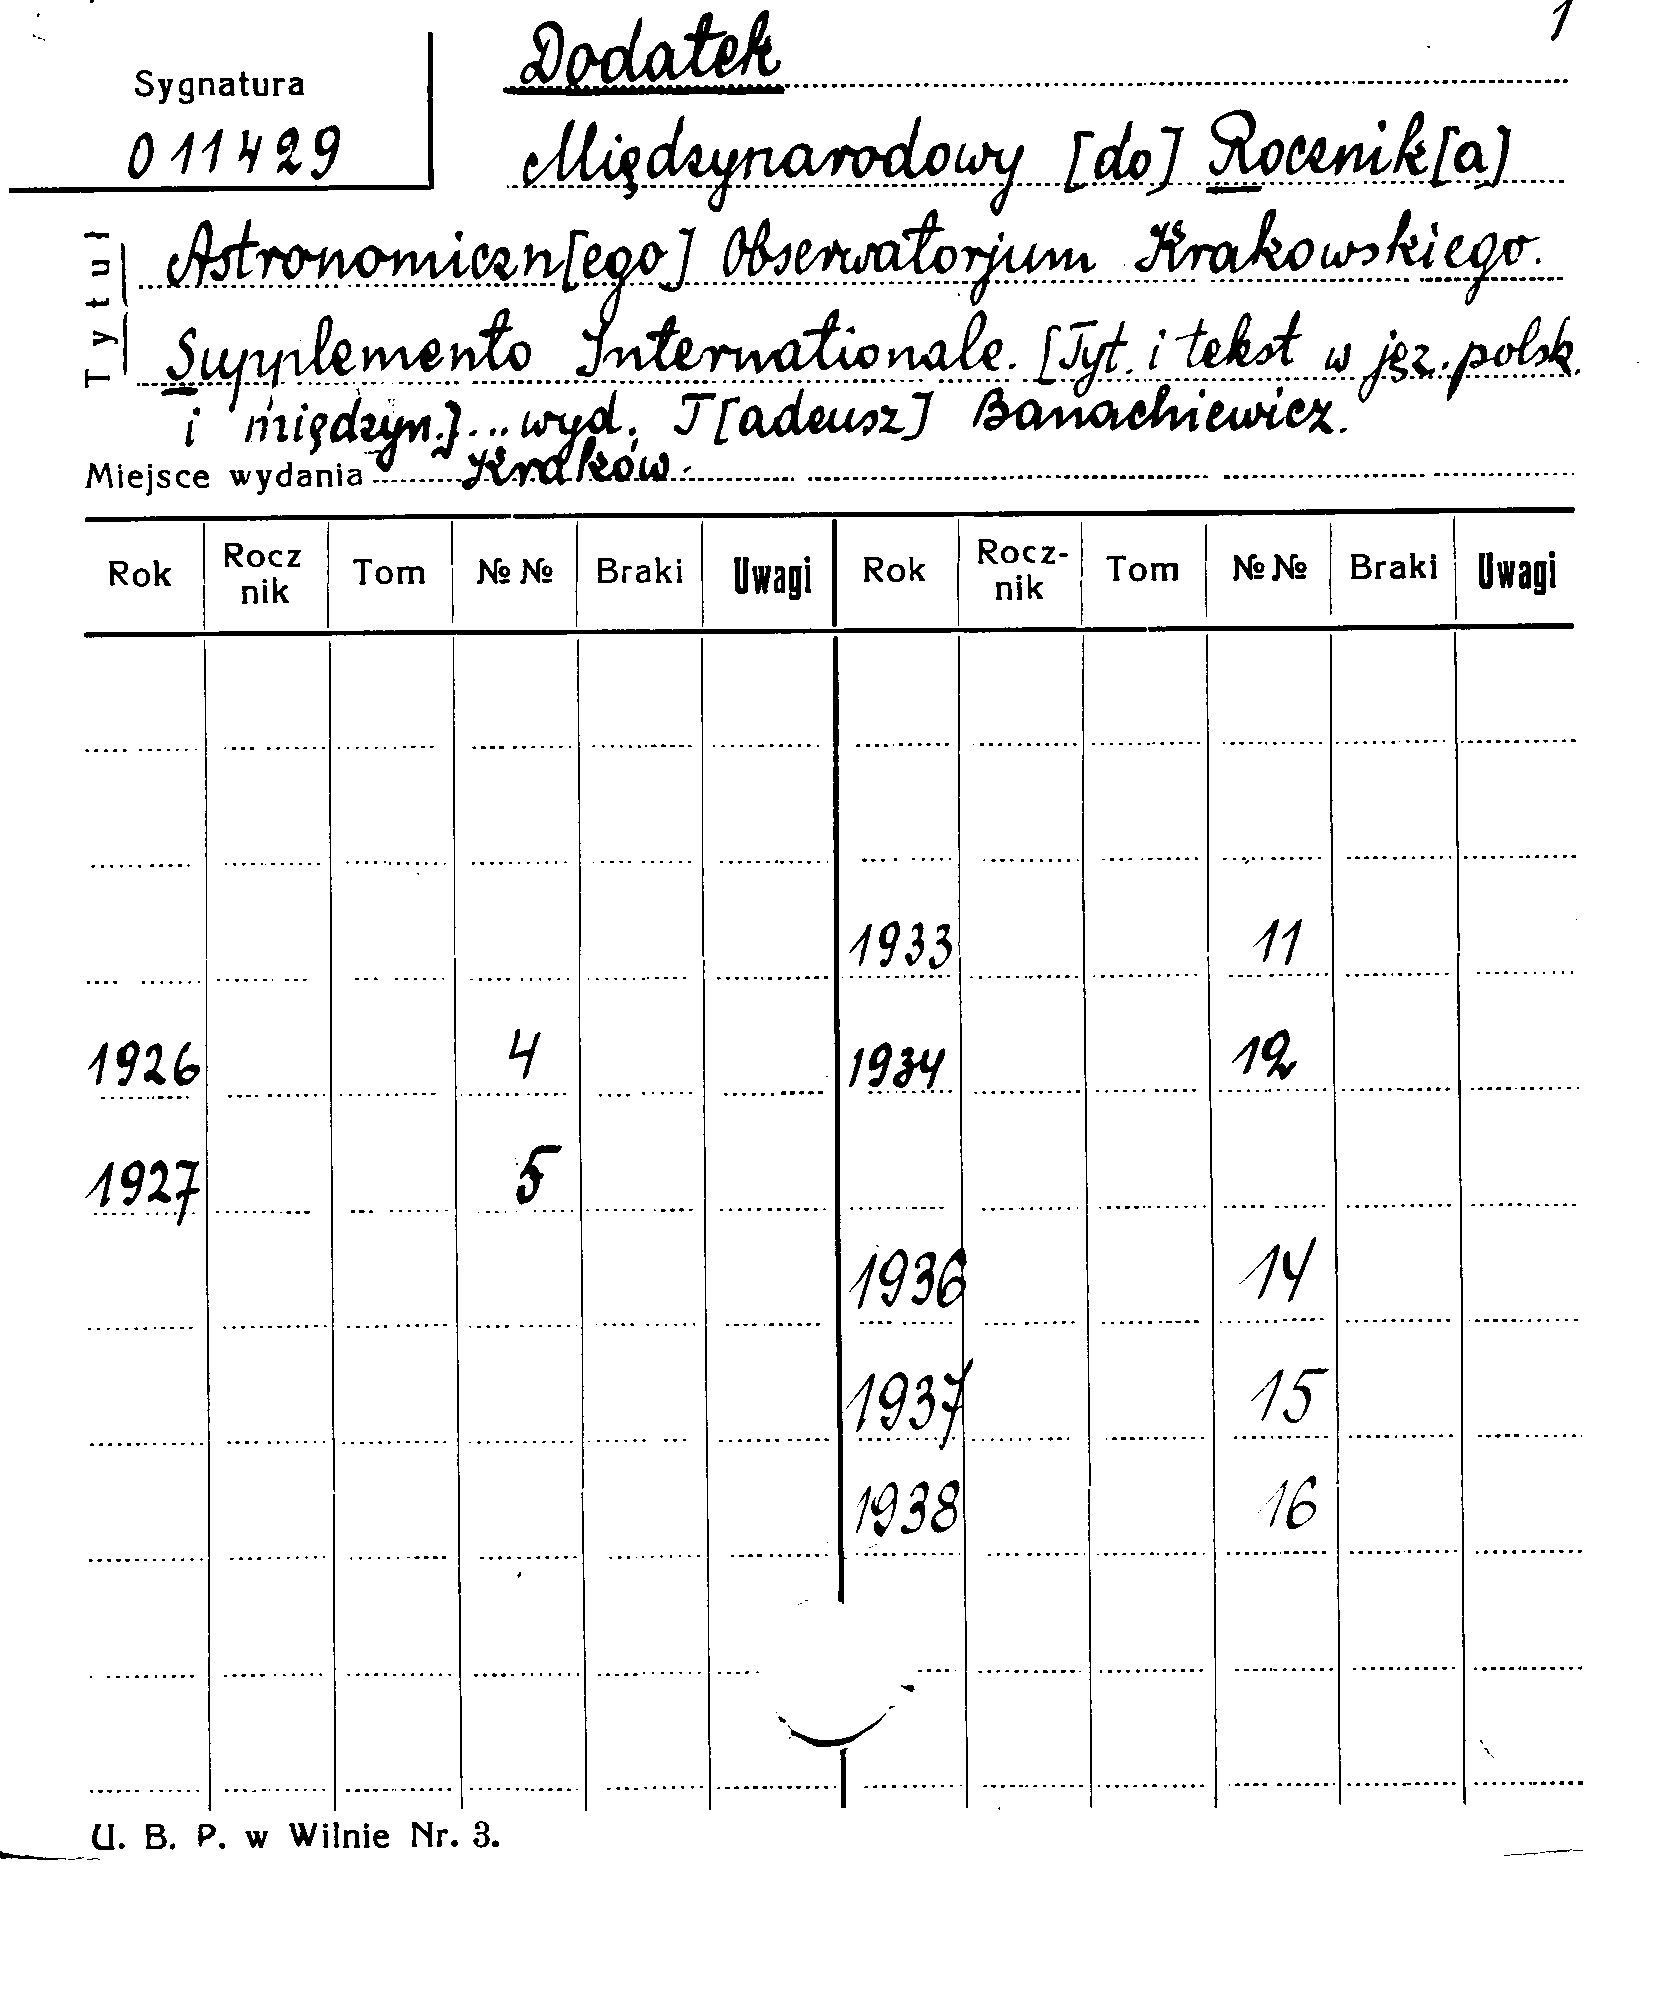 1
Dodatek
Sygnatura
011429
Międzynarodowy [do] Rocznik[a]
Tytuł
Astronomiczn[ego] Obserwatorjum Krakowskiego.
Supplemento Internationale. [Tyt. i tekst w jęz. polsk.
i międzyn.] ... wyd. T[adeusz] Banachiewicz.
Miejsce wydania Kraków.
Rok Rocz nik Tom №№ Braki Uwagi Rok Rocz- nik Tom №№ Braki Uwagi
1933 11
1926 4 1934 12
1927 5
1936 14
1937 15
1938 16
U. B. P. w Wilnie Nr. 3.